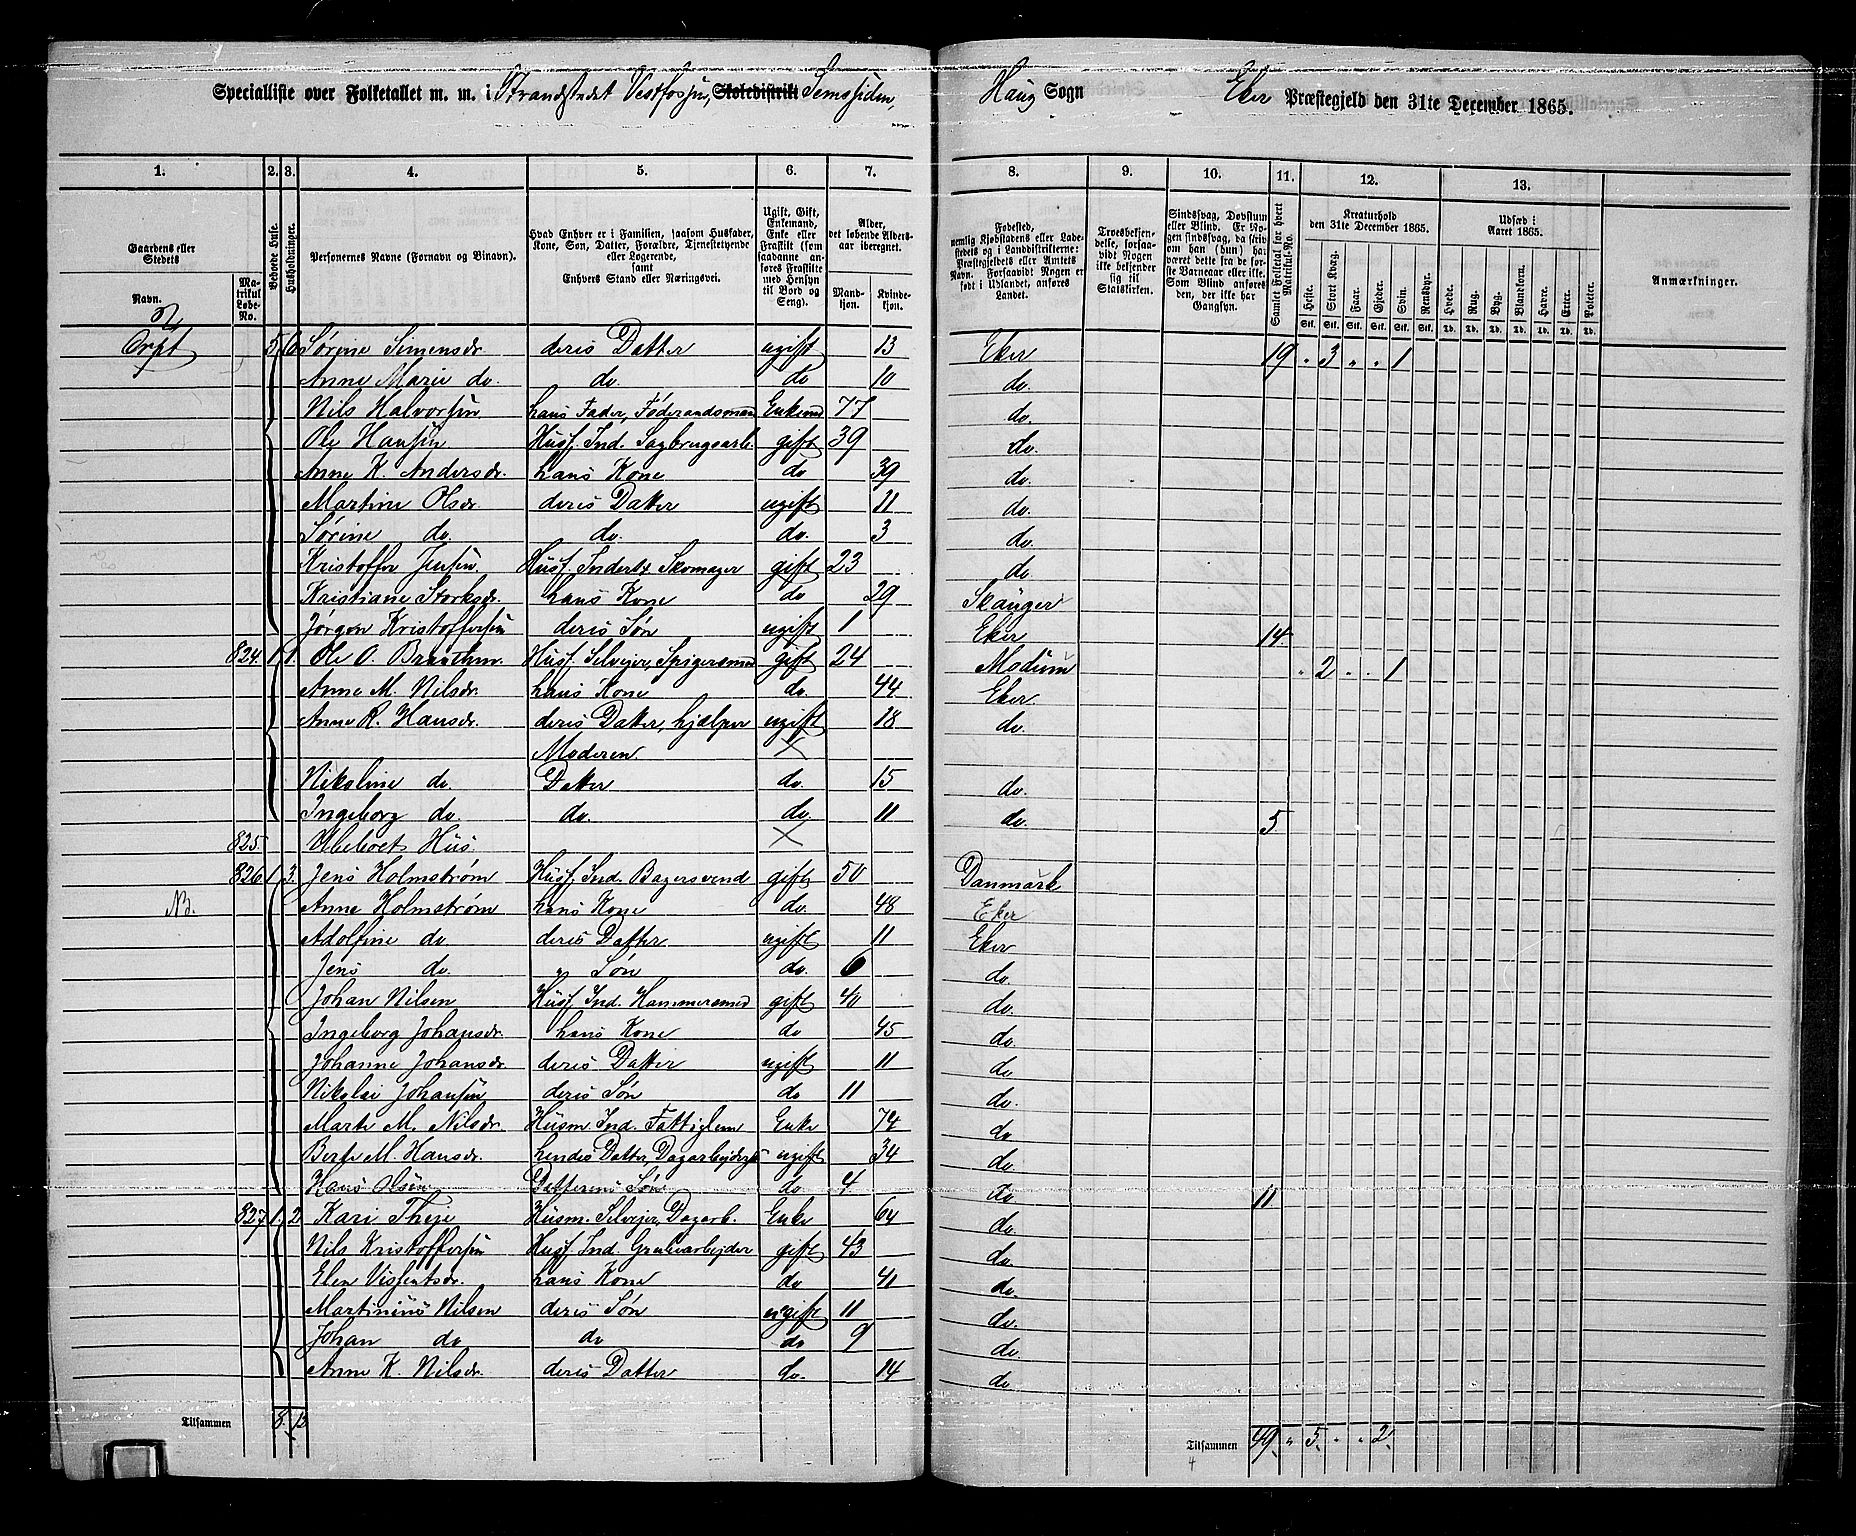 Specialliste over Folketallet m. m. i Strandstedet Vestfossen, Skoledistrikt Semssiden, Haug Sogn Eker Præstegjeld den 31te December 1865.
1. 2. 3. 4. 5. 6. 7. 8. 9. 10. 11. 12. 13.
Gaardens eller Stedets
Navn.
Matrikul Løbe-No.
Beboede Huse.
Husholdninger.
Personernes Navne (Fornavn og Binavn).
Hvad Enhver er i Familien, saasom Husfader, Kone, Søn, Datter, Forældre, Tjenestetyende eller Logerende, samt Enhvers Stand eller Næringsvei.
Ugift, Gift, Enkemand, Enke eller Fraskilt (som saadanne anføres Fraskilte med Hensyn til Bord og Seng).
Alder, det løbende Aldersaar iberegnet.
Mandkjøn. Kvindekjøn.
Fødested, nemlig Kjøbstadens eller Ladestedets og i Landdistrikterne: Præstegjeldets eller Amtets Navn. Forsaavidt Nogen er født i Udlandet, anføres Landet.
Troesbekjendelse, forsaavidt Nogen ikke bekjender sig til Statskirken.
Sindssvag, Døvstum eller Blind. Er Nogen sindssvag, da skriv om han (hun) har været dette fra de første Barneaar eller ikke. Som Blind anføres den, der ikke har Gangsyn.
Samlet Folketal for hvert Matrikul-No.
Kreaturhold den 31te December 1865.
Heste. Stort Kvæg. Faar. Gjeder. Svin. Rensdyr.
Stk. Stk. Stk. Stk. Stk. Stk.
Udsæd i Aaret 1865.
Hvede. Rug. Byg. Blandkorn. Havre. Erter. Poteter.
Td. Td. Td. Td. Td. Td. Td.
Anmærkninger.
5 6 Sørine Simensdr. deres Datter ugift 13 Eker 19 " 3 " " 1
Anne Marie do. do. do 10 do.
Nils Halvorsen hans Fader, Føderaadsmand Enkemd 77 do.
Ole Hansen Husf. Ind. Sagbrugsarb. gift 39 do.
Anne K. Andersdr. hans Kone do 39 do.
Martine Olsdr. deres Datter ugift 11 do.
Sørine do. do. do. 3 do.
Kristoffer Jensen Husf. Inderst Skomager gift 23 do
Kristiane Storksdr. hans Kone do 29 Skauger
Jørgen Kristoffersen deres Søn ugift 1 Eker 14
824. 1 1. Ole O. Braathen Husf. Selveier, Spigersmed gift 24 Modum " 2 " " 1
Anne M. Nilsdr. hans Kone do. 44 Eker
Anne R. Hansdr. deres Datter, hjælper ugift 18 do.
Moderen ×
Nikoline do. Datter do. 15 do.
Ingeborg do. do. do. 11 do. 5
825. Ubeboet Hus. ×
826 1 3. Jens Holmstrøm Husf. Ind. Bagersvend gift 50 Danmark
NB. Anne Holmstrøm hans Kone do. 48 Eker
Adolfine do. deres Datter ugift 11 Eker
Jens do. " Søn do. 6 do.
Johan Nilsen Husf. Ind. Hammersmed gift 40 do.
Ingeborg Johansdr. hans Kone do 45 do.
Johanne Johansdr. deres Datter ugift 11 do
Nikolai Johansen deres Søn do 11 do.
Marte M. Nilsdr. Husm. Ind. Fattiglem Enke 74 do
Berte M. Hansdr. hendes Datter, Dagarbejderske ugift 34 do.
Hans Olsen Datterens Søn do. 4 do 11
827 1 2 Kari Theje Husm. Selvejer, Dagarb. Enke 64 do.
Nils Kristoffersen Husf. Ind. Grubearbejder gift 43 do.
Elen Vissentsdr. hans Kone do 41 do.
Martinius Nilsen deres Søn ugift 11 do.
Johan do do do 9 do
Anne K. Nilsdr. deres Datter do. 14 do
Tilsammen 8. 12 Tilsammen 49. " 5. " " 2.
4